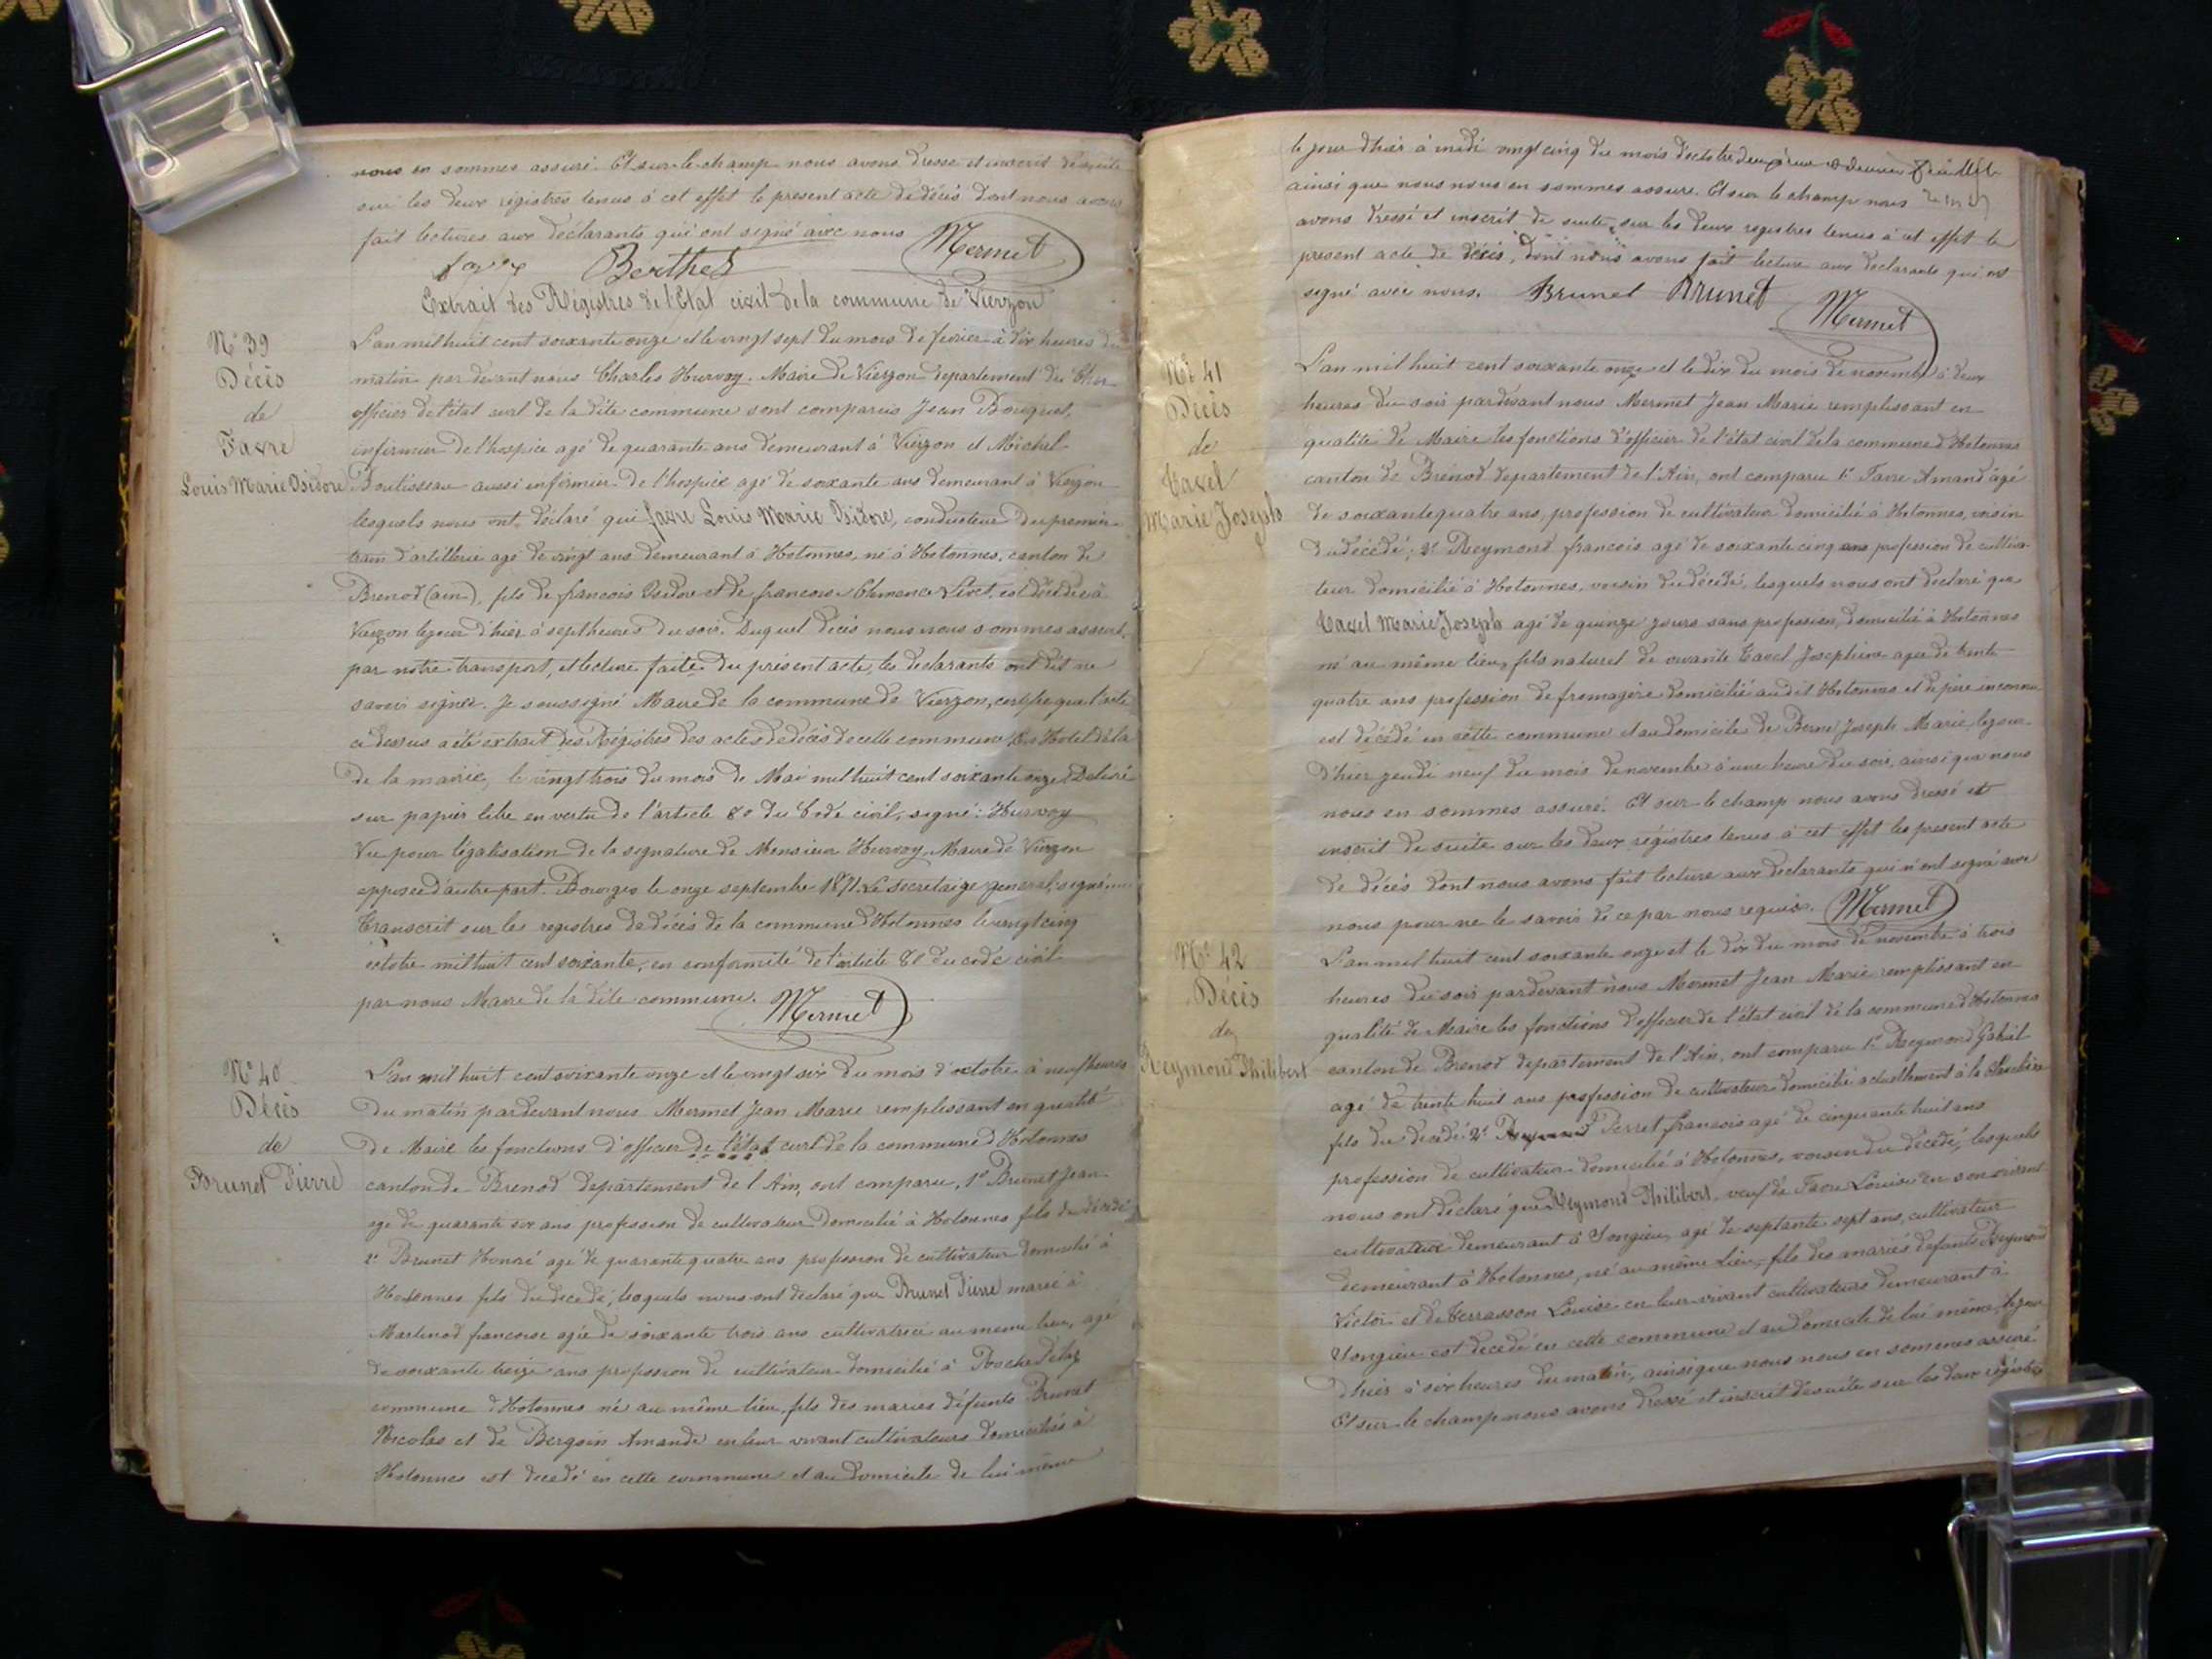 nous en sommes assuré. Et sur-le-champ nous avons dressé et inscrit de suite
sur les deux registres tenus à cet effet le present acte de décès dont nous avons
fait lectures aux déclarants qui ont signé avec nous
Mermet
Berthet
Extrait des Régistres de l'Etat civil de la commune de Vierzon
N° 39
Décès
de
Favre
Louis Marie Isidore
L'an mil huit cent soixante onze et le vingt sept du mois de fevrier à dix heures du
matin par devant nous Charles Hurvoy. Maire de Vierzon departement du Cher
officier de l'état civil de la dite commune sont comparus Jean Bouquet,
infirmier de l'hospice agé de quarante ans demeurant à Vierzon et Michel
aussi infirmier de l'hospice agé de soixante ans demeurant à Vierzon
lesquels nous ont déclaré que favre Louis Marie Isidore, conducteur du premier
train d'artillerie agé de vingt ans demeurant à Hotonnes, né à Hotonnes, canton de
Brenod (ain), fils de francois Isidore et de francoise Clemence est décédé à
Vierzon le jour d'hier à sept heures du soir. Duquel décès nous nous sommes assuré,
par notre transport, et lecture faite du présent acte, les declarants ont dit ne
savoir signer. Je soussigné Maire de la commune de Vierzon, certifie que l'acte
ci dessus a été extrait des Régistres des actes de décès de cette commune. En Hotel de la
de la mairie, le vingt trois du mois de Mai mil huit cent soixante onze. Delivré
sur papier libre en vertu de l'article 80 du Code civil, signé: Hurvoy
Vu pour légalisation de la signature de Monsieur Hurvoy, Maire de Vierzon
apposée d'autre part. Bourges le onze septembre 1871. Le secretaire general, signé:
Transcrit sur les registres de décès de la commune d'Hotonnes le vingt cinq
octobre mil huit cent soixante, en conformité de l'article 80 du code civil
par nous Maire de la dite commune. Mermet
N° 40
Décès
de
Brunet Pierre
L'an mil huit cent soixante onze et le vingt six du mois d'octobre à neuf heures
du matin pardevant nous Mermet Jean Marie remplissant en qualité
de Maire les fonctions d'officier de l'état civil de la commune d'Hotonnes
canton de Brenod departement de l'Ain, ont comparu, 1° Brunet Jean
age de quarante six ans profession de cultivateur domicilié à Hotonnes fils du décédé
2° Brunet Honoré agé de quarante quatre ans profession de cultivateur domicilié à
Hotonnes fils du décédé, lesquels nous ont declaré que Brunet Pierre marié à
Martinod francoise agée de soixante trois ans cultivatrice au meme lieu, agé
de soixante treize ans profession de cultivateur domicilié à
commune d'Hotonnes né au même lieu, fils des mariés défunts Brunet
Nicolas et de Bergoin Amande en leur vivant cultivateurs domiciliés à
Hotonnes est decedé en cette commune et au domicile de lui même
le jour d'hier à midi vingt cinq du mois d'octobre
ainsi que nous nous en sommes assuré. Et sur le champ nous
avons dressé et inscrit de suite sur les deux registres tenus à cet effet le
present acte de décès, dont nous avons fait lecture aux declarants qui ont
signé avec nous. Brunet Brunet
Mermet
N° 41
Décès
de
Tavel
Marie Joseph
L'an mil huit cent soixante onze et le dix du mois de novembre à deux
heures du soir pardevant nous Mermet Jean Marie remplissant en
qualité de Maire les fonctions d'officier de l'état civil de la commune d'Hotonnes
canton de Brénod departement de l'Ain, ont comparu 1° Favre Amand agé
de soixante quatre ans, profession de cultivateur domicilié à Hotonnes, voisin
du décédé; 2° Reymond francois agé de soixante cinq ans profession de cultiva-
teur domicilié à Hotonnes, voisin du décédé, lesquels nous ont declaré que
Tavel Marie Joseph agé de quinze jours sans profession, domicilié à Hotonnes
né au même lieu, fils naturel de vivante Tavel Josephine agée de trente
quatre ans profession de fromagère domicilié audit Hotonnes et de père inconnu
est décédé en cette commune et au domicile de Joseph Marie le jour
d'hier jeudi neuf du mois de novembre à une heure du soir, ainsi que nous
nous en sommes assuré. Et sur-le champ nous avons dressé et
inscrit de suite sur les deux régistres tenus à cet effet les present acte
de décès dont nous avons fait lecture aux declarants qui n'ont signé avec
nous pour ne le savoir de ce par nous requis. Mermet
N° 42
Décès
de
Reymond Philibert
L'an mil huit cent soixante onze et le dix du mois de novembre à trois
heures du soir pardevant nous Mermet Jean Marie remplissant en
qualité de Maire les fonctions d'officier de l'état civil de la commune d'Hotonnes
canton de Brenod departement de l'Ain, ont comparu 1° Reymond Gabriel
agé de trente huit ans profession de cultivateur domicilié actuellement à la
fils du decedé. 2° Perret francois agé de cinquante huit ans
profession de cultivateur domicilié à Hotonnes, voisin du décédé, lesquels
nous ont déclaré que Reymond Philibert, veuf de Favre Louise en son vivant
cultivatrice demeurant à Songieu, agé de septante sept ans, cultivateur
demeurant à Hotonnes, né au même lieu, fils des mariés defunts Reymond
Victor et de Terrasson Louise en leur vivant cultivateurs demeurant à
Songieu est decedé en cette commune et au domicile de lui même, le jour
d'hier à six heures du matin, ainsi que nous nous en sommes assuré
Et sur-le champ nous avons dressé et inscrit de suite sur les deux régistres